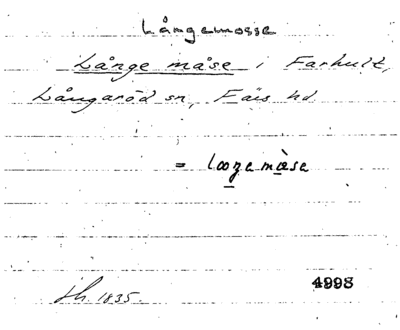 Långemosse
Långe måse i Farhult,
Långaröd sn, Färs hd
= looŋemòse
Lh. 1835.
4998